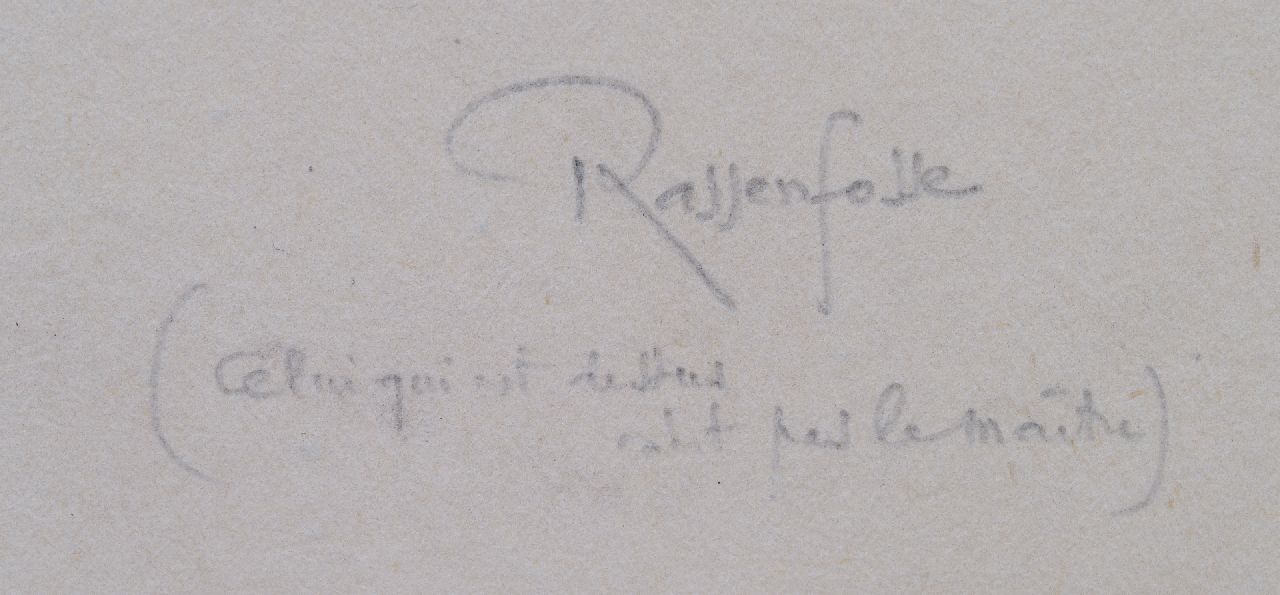 Rassenfosse
(Celui qui est dessus
n'est pas le maître)